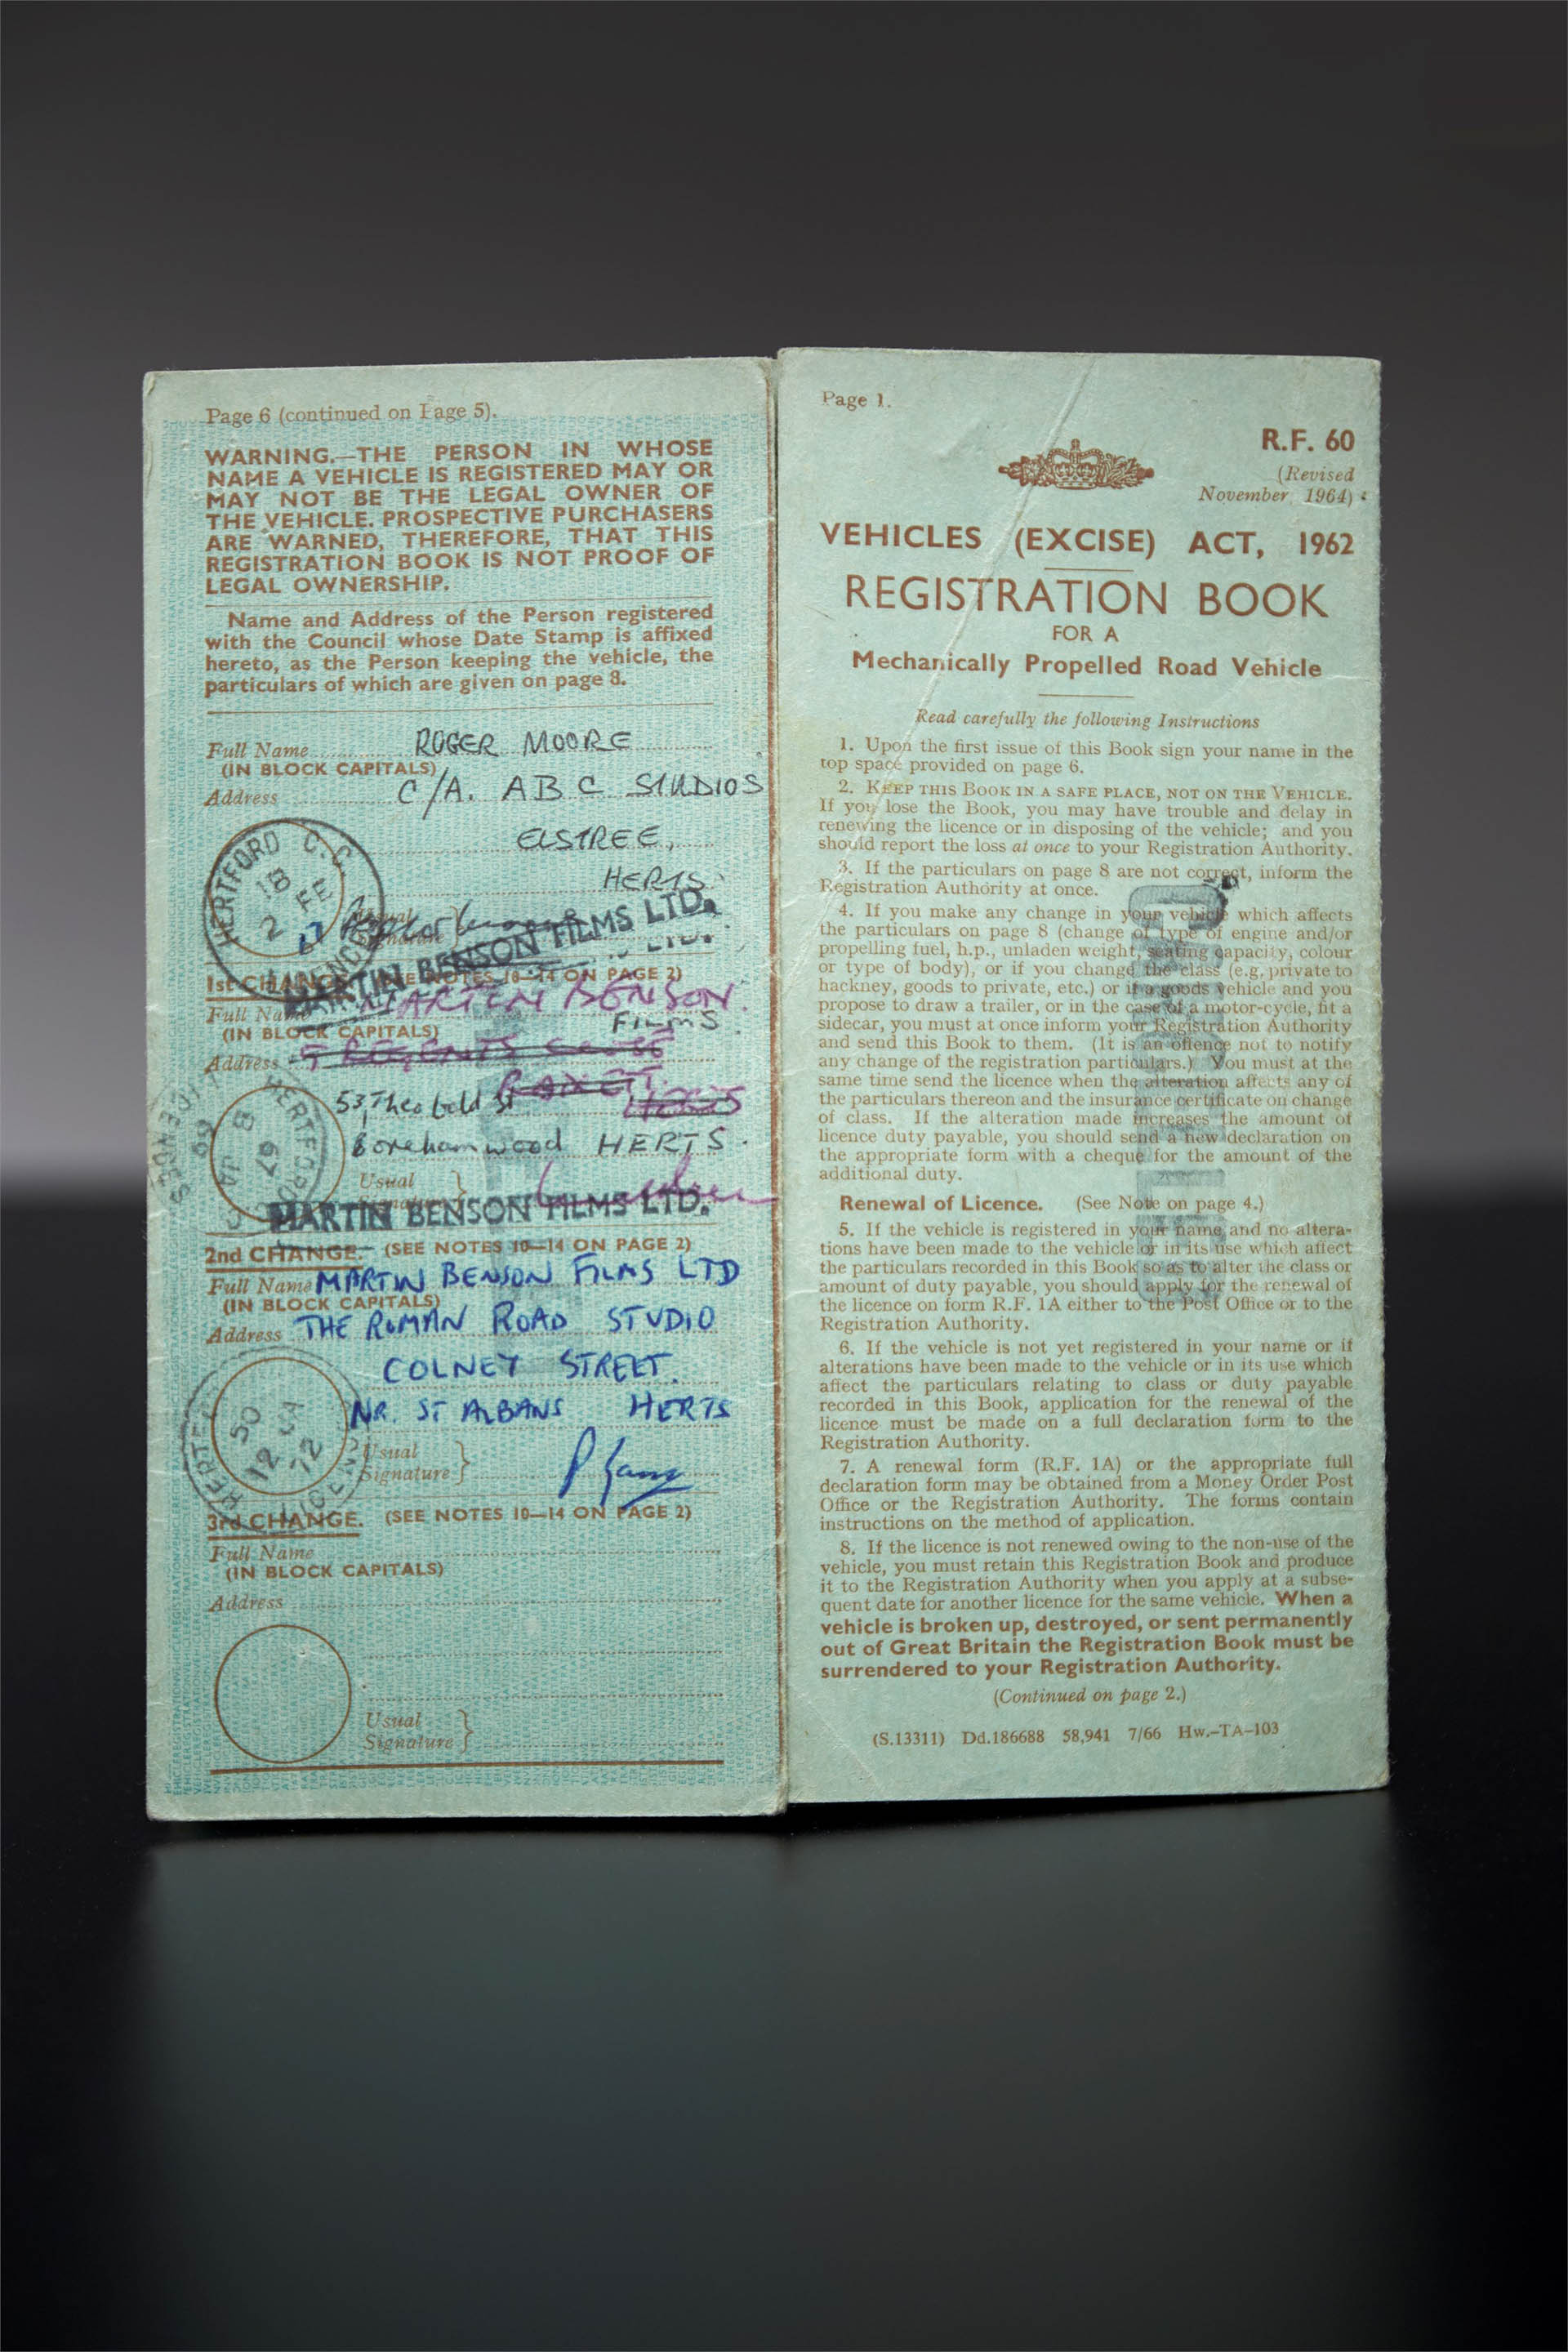 Page 6 (continued on Page 5).
WARNING.—THE PERSON IN WHOSE
NAME A VEHICLE IS REGISTERED MAY OR
MAY NOT BE THE LEGAL OWNER OF
THE VEHICLE. PROSPECTIVE PURCHASERS
ARE WARNED, THEREFORE, THAT THIS
REGISTRATION BOOK IS NOT PROOF OF
LEGAL OWNERSHIP.
Name and Address of the Person registered
with the Council whose Date Stamp is affixed
hereto, as the Person keeping the vehicle, the
particulars of which are given on page 8.
Full Name ROGER MOORE
(IN BLOCK CAPITALS)
Address C/A. ABC STUDIOS
ELSTREE,
HERTS
HERTFORD C.C.
18
2 FE
MARTIN BENSON FILMS LTD.
1st CHANGE. (SEE NOTES 10—14 ON PAGE 2)
Full Name MARTIN BENSON
(IN BLOCK CAPITALS) FILMS
Address
53, Theobald St
Borehamwood HERTS.
Usual
Signature
MARTIN BENSON FILMS LTD.
2nd CHANGE. (SEE NOTES 10—14 ON PAGE 2)
Full Name MARTIN BENSON FILMS LTD
(IN BLOCK CAPITALS)
Address THE ROMAN ROAD STUDIO
COLNEY STREET.
NR. ST ALBANS HERTS
50
12 JA
72
Usual
Signature
3rd CHANGE. (SEE NOTES 10—14 ON PAGE 2)
Full Name
(IN BLOCK CAPITALS)
Address
Usual
Signature
Page 1.
R.F. 60
(Revised
November 1964)
VEHICLES (EXCISE) ACT, 1962
REGISTRATION BOOK
FOR A
Mechanically Propelled Road Vehicle
Read carefully the following Instructions
1. Upon the first issue of this Book sign your name in the
top space provided on page 6.
2. KEEP THIS BOOK IN A SAFE PLACE, NOT ON THE VEHICLE.
If you lose the Book, you may have trouble and delay in
renewing the licence or in disposing of the vehicle; and you
should report the loss at once to your Registration Authority.
3. If the particulars on page 8 are not correct, inform the
Registration Authority at once.
4. If you make any change in your vehicle which affects
the particulars on page 8 (change of type of engine and/or
propelling fuel, h.p., unladen weight, seating capacity, colour
or type of body), or if you change the class (e.g. private to
hackney, goods to private, etc.) or if a goods vehicle and you
propose to draw a trailer, or in the case of a motor-cycle, fit a
sidecar, you must at once inform your Registration Authority
and send this Book to them. (It is an offence not to notify
any change of the registration particulars.) You must at the
same time send the licence when the alteration affects any of
the particulars thereon and the insurance certificate on change
of class. If the alteration made increases the amount of
licence duty payable, you should send a new declaration on
the appropriate form with a cheque for the amount of the
additional duty.
Renewal of Licence. (See Note on page 4.)
5. If the vehicle is registered in your name and no altera-
tions have been made to the vehicle or in its use which affect
the particulars recorded in this Book so as to alter the class or
amount of duty payable, you should apply for the renewal of
the licence on form R.F. 1A either to the Post Office or to the
Registration Authority.
6. If the vehicle is not yet registered in your name or if
alterations have been made to the vehicle or in its use which
affect the particulars relating to class or duty payable
recorded in this Book, application for the renewal of the
licence must be made on a full declaration form to the
Registration Authority.
7. A renewal form (R.F. 1A) or the appropriate full
declaration form may be obtained from a Money Order Post
Office or the Registration Authority. The forms contain
instructions on the method of application.
8. If the licence is not renewed owing to the non-use of the
vehicle, you must retain this Registration Book and produce
it to the Registration Authority when you apply at a subse-
quent date for another licence for the same vehicle. When a
vehicle is broken up, destroyed, or sent permanently
out of Great Britain the Registration Book must be
surrendered to your Registration Authority.
(Continued on page 2.)
(S.13311) Dd.186688 58,941 7/66 Hw.-TA-103